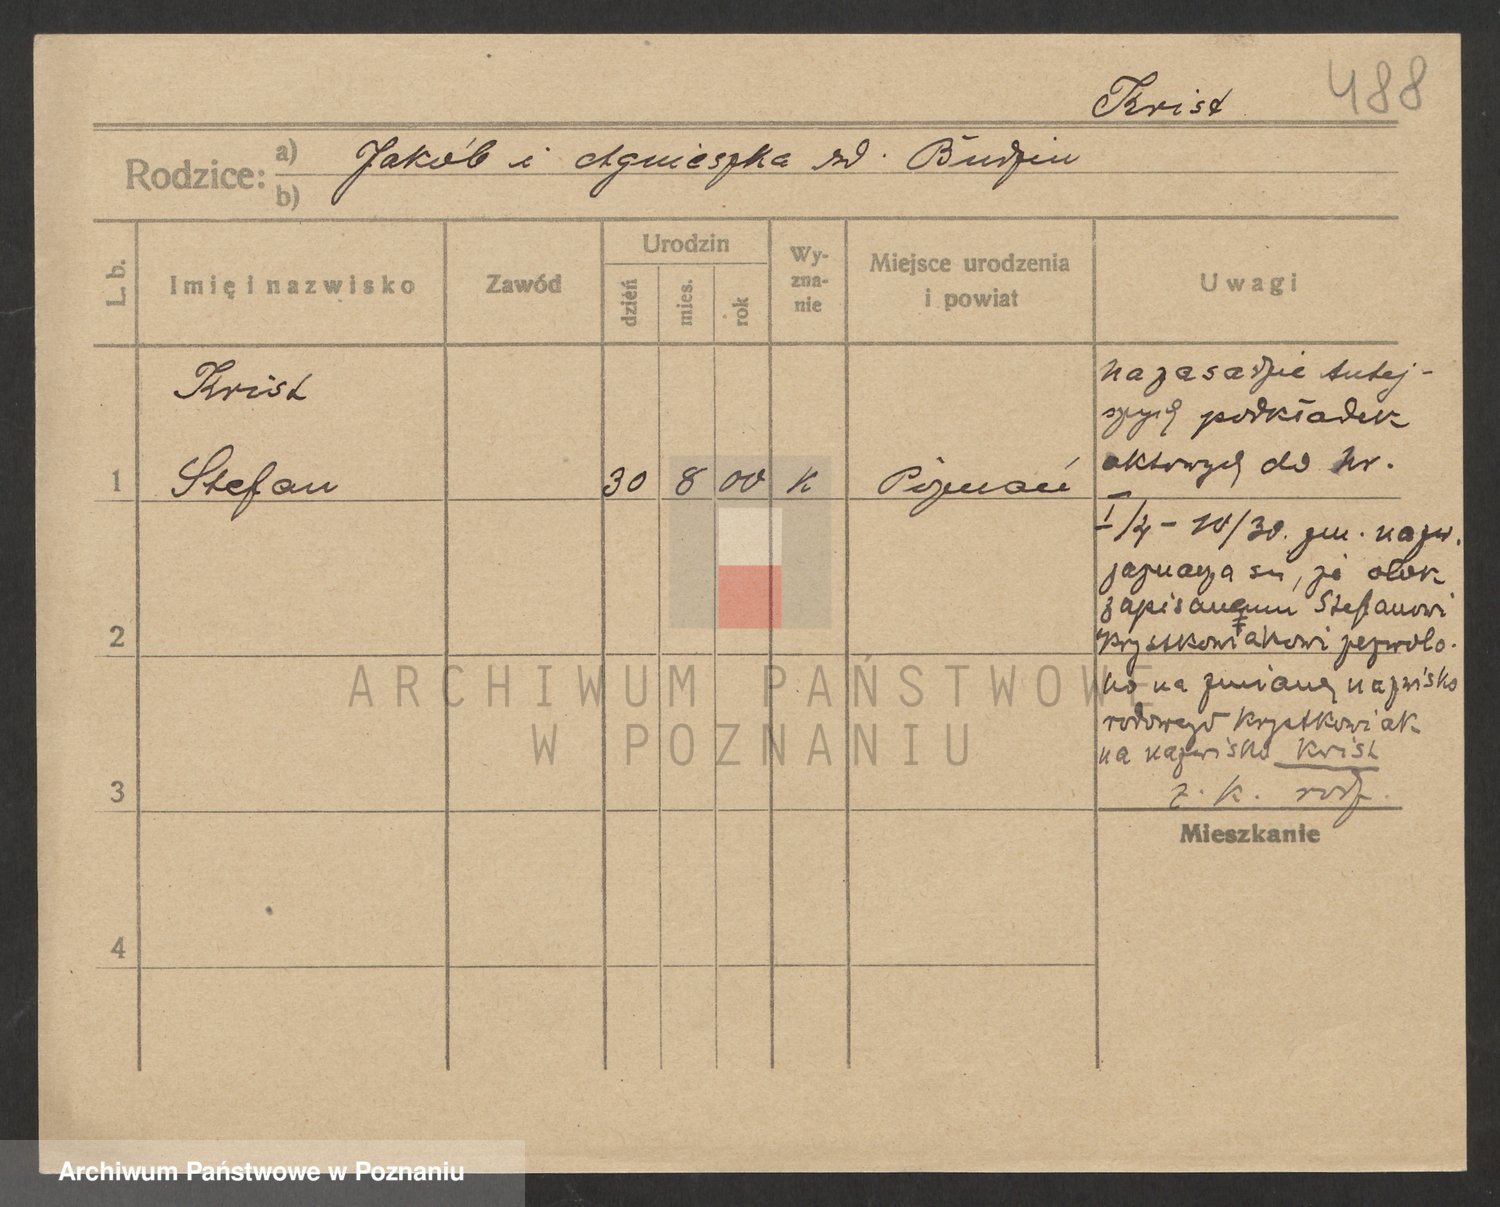 Krist 488
Rodzice: a) Jakób i Agnieszka zd. Budzin
b)
L. b. Imię i nazwisko Zawód Urodzin dzień mies. rok Wyznanie Miejsce urodzenia i powiat Uwagi
Krist
1 Stefan 30 8 00 K Poznań
2
3
4
na zasadzie tutej-
szych podkładek
aktowych do Nr.
I/4 - 10/30. zm. nazw.
zaznacza się, że obok
zapisanemu Stefanowi
Krystkowiakowi zezwolo-
no na zmianę nazwisko
rodowego Krystkowiak
na nazwisko Krist
z. k. rodz.
Mieszkanie
ARCHIWUM PAŃSTWOWE
W POZNANIU
Archiwum Państwowe w Poznaniu